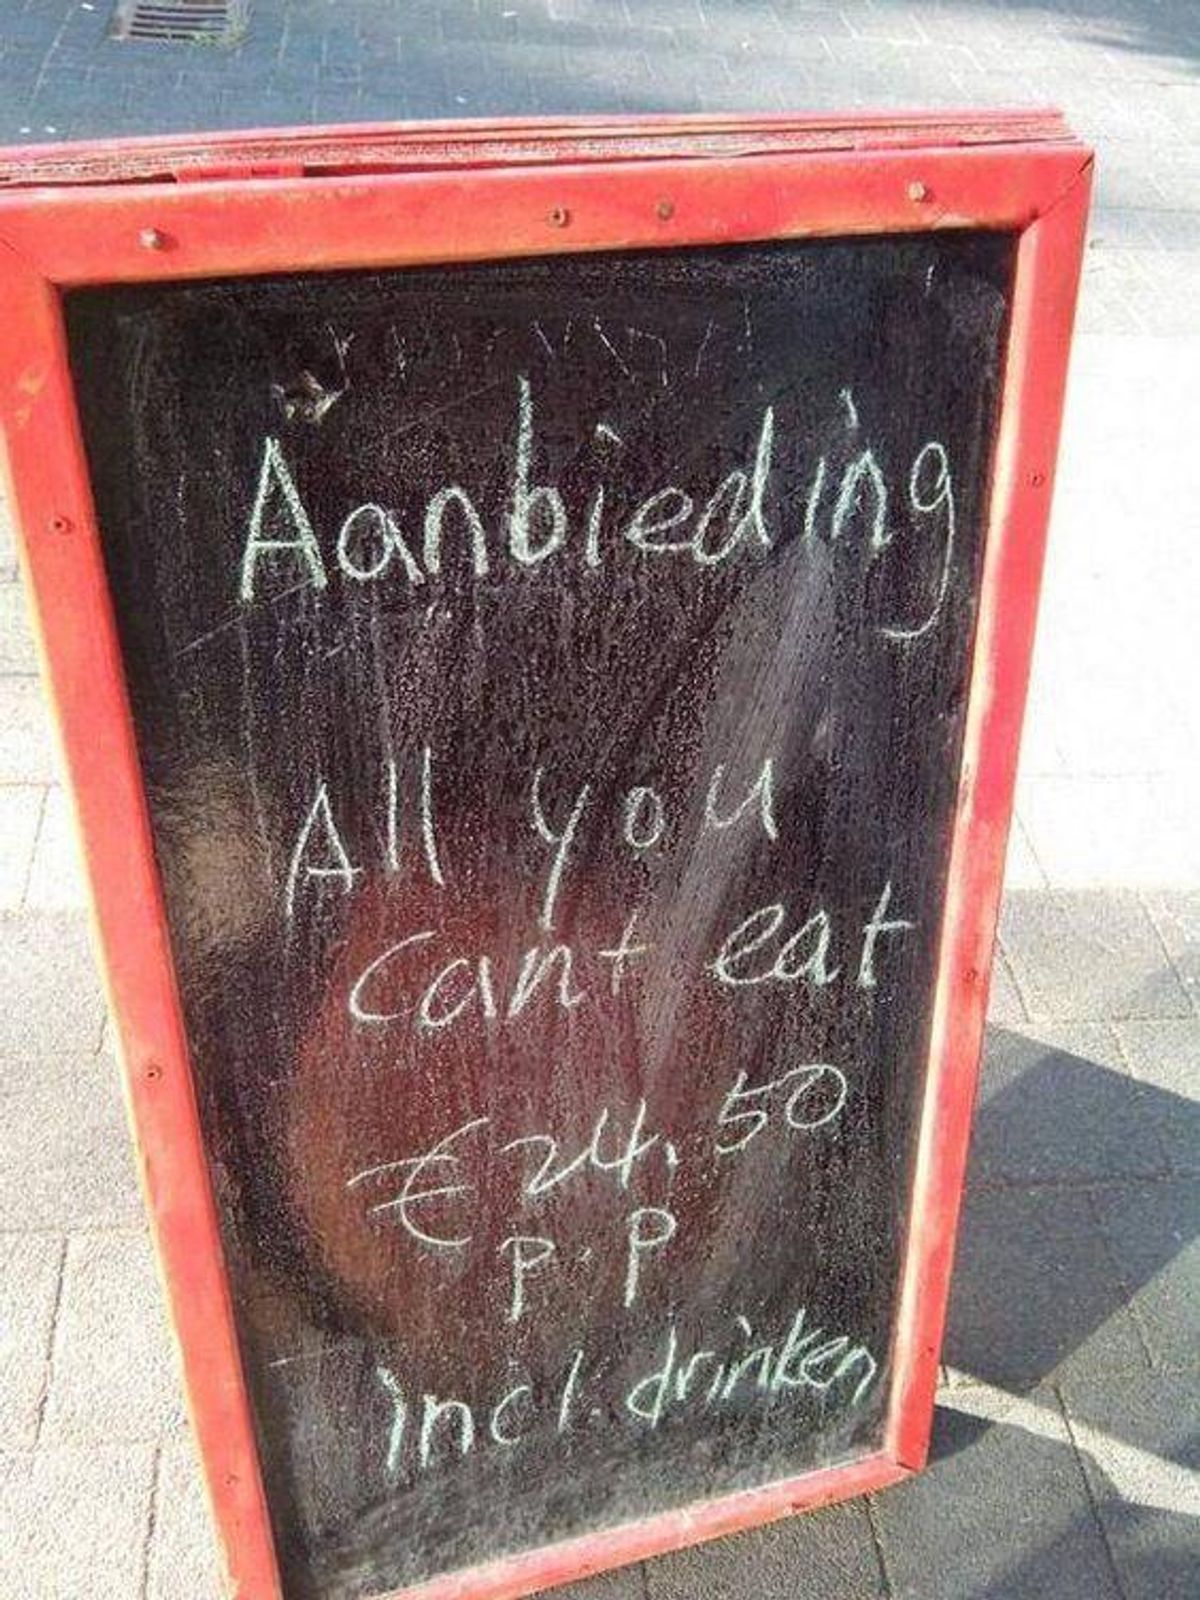 Aanbieding
All you
cant eat
€ 24,50
P.P
incl. drinken